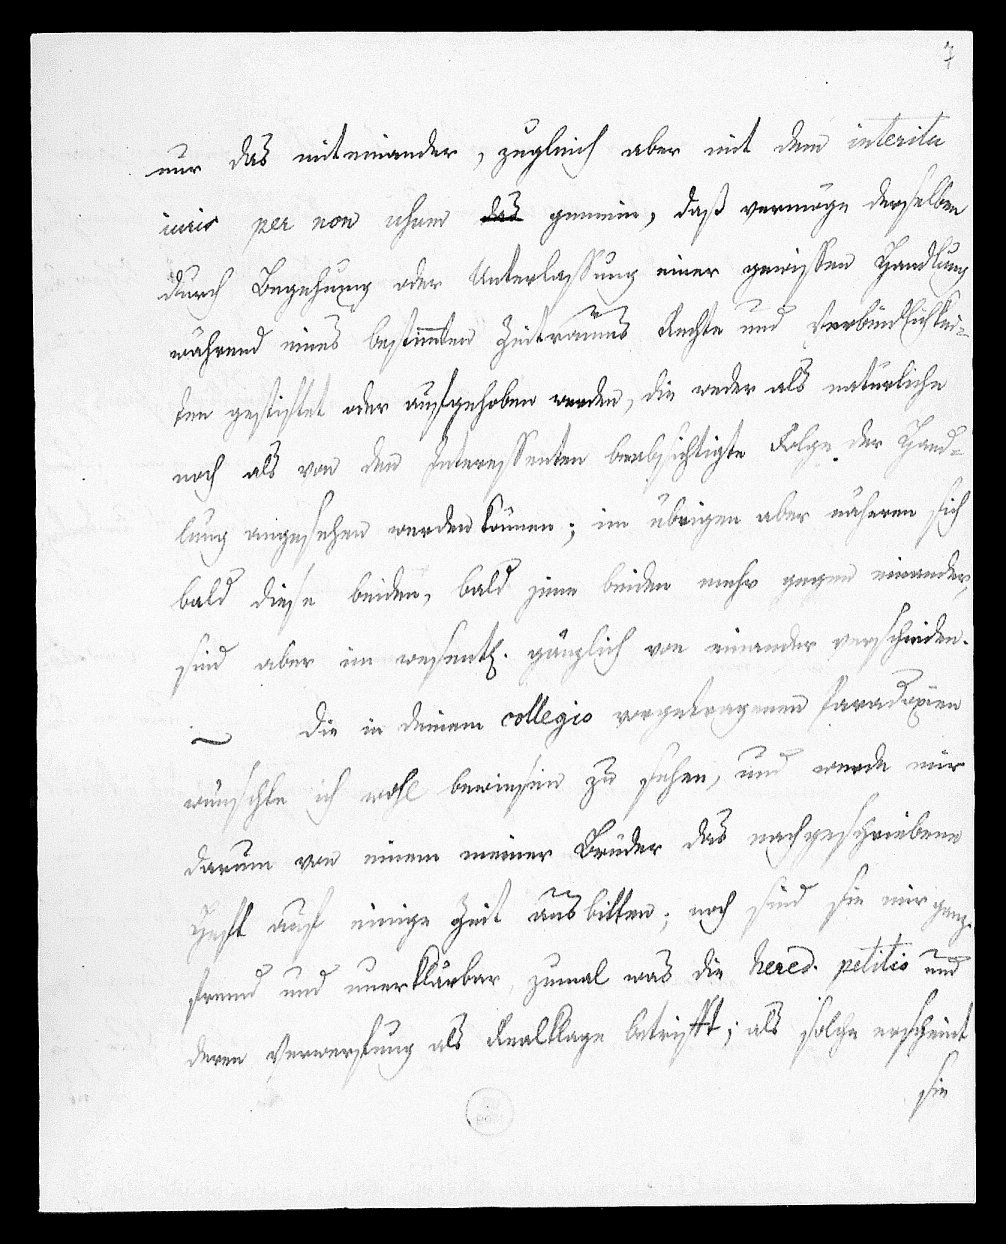 7
nur das miteinander, zugleich aber mit dem interitu
iuris per non usum das gemein, daß vermöge derselben
durch Begehung oder Unterlassung einer gewissen Handlung
während eines bestimten Zeitraums Rechte und Verbindlichkei-
ten gestiftet oder aufgehoben werden, die weder als natürliche
noch als von den Interessenten beabsichtigte Folge der Hand-
lung angesehen werden können; im übrigen aber nähern sich
bald diese beiden, bald jene beiden mehr gegen einander,
sind aber im wesentl. gänzlich von einander verschieden.
Die in deinem collegio vorgetragenen Paradoxien
wünschte ich wohl bewiesen zu sehen, und werde mir
darum von einem meiner Brüder das nachgeschriebene
Heft auf einige Zeit ausbitten; noch sind sie mir ganz
fremd und unerklärbar, zumal was die hered. petitio und
deren Verwerfung als Realklage betrifft; als solche erscheint
sie